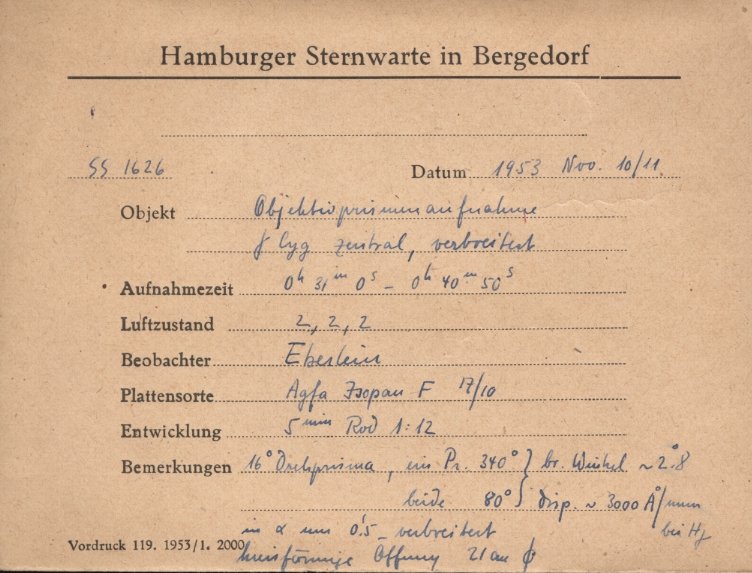 Hamburger Sternwarte in Bergedorf
SS 1626 Datum 1953 Nov. 10/11
Objekt Objektivprismenaufnahme
γ Cyg zentral, verbreitert
Aufnahmezeit 0ʰ 31ᵐ 0ˢ – 0ʰ 40ᵐ 50ˢ
Luftzustand 2, 2, 2
Beobachter Eberlein
Plattensorte Agfa Isopan F 17/10
Entwicklung 5 min Rod 1:12
Bemerkungen 16° Drehprisma, ein Pr. 340° } br. Winkel ~ 2°.8
beide 80° } Disp. ~ 3000 Å/mm
in α um 0'.5 verbreitert bei Hγ
Vordruck 119. 1953/1. 2000 kreisförmige Öffnung 21 cm ϕ